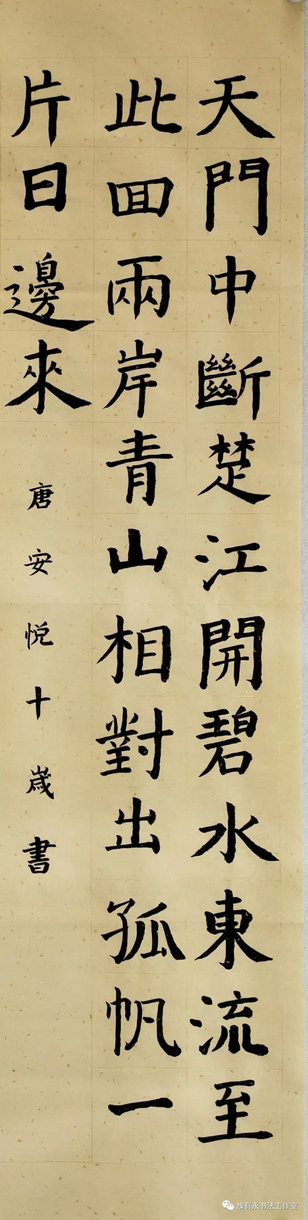 天門中斷楚江開碧水東流至
此回兩岸青山相對出孤帆一
片日邊來
唐安悦十歲書
魏有永书法工作室